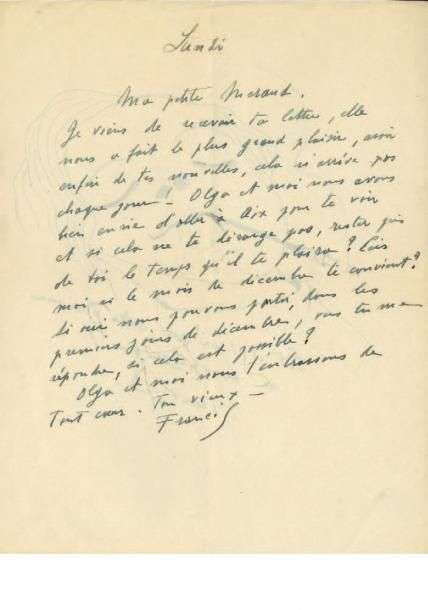 Lundi
Ma petite Meraud.
Je viens de recevoir ta lettre, elle
nous a fait le plus grand plaisir, avoir
enfin de tes nouvelles, cela n'arrive pas
chaque jour! Olga et moi nous avons
bien envie d'aller à Aix pour te voir
et si cela ne te dérange pas, rester près
de toi le temps qu'il te plaira? Dis
moi si le mois de décembre te convient?
Si oui nous pouvons partir, dans les
premiers jours de décembre, vas tu me
répondre, si cela est possible?
Olga et moi nous t'embrassons de
Tout cœur. Ton vieux –
Francis